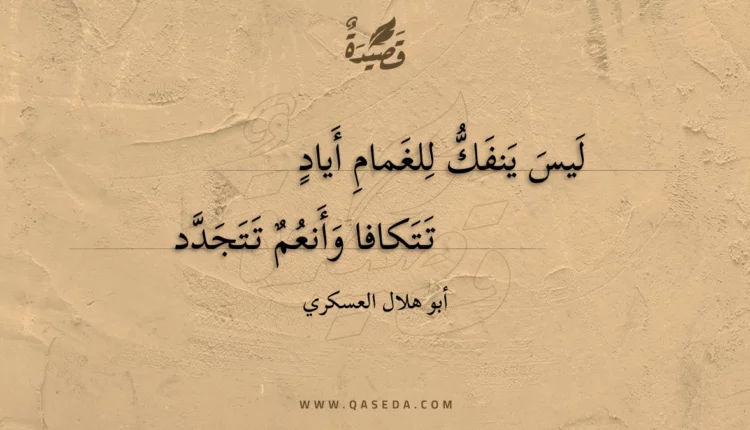 قَصِيدَةٌ
لَيسَ يَنفَكُّ لِلغَمامِ أَيادٍ
تَتَكافا وَأَنعُمٌ تَتَجَدَّد
أبو هلال العسكري
WWW.QASEDA.COM